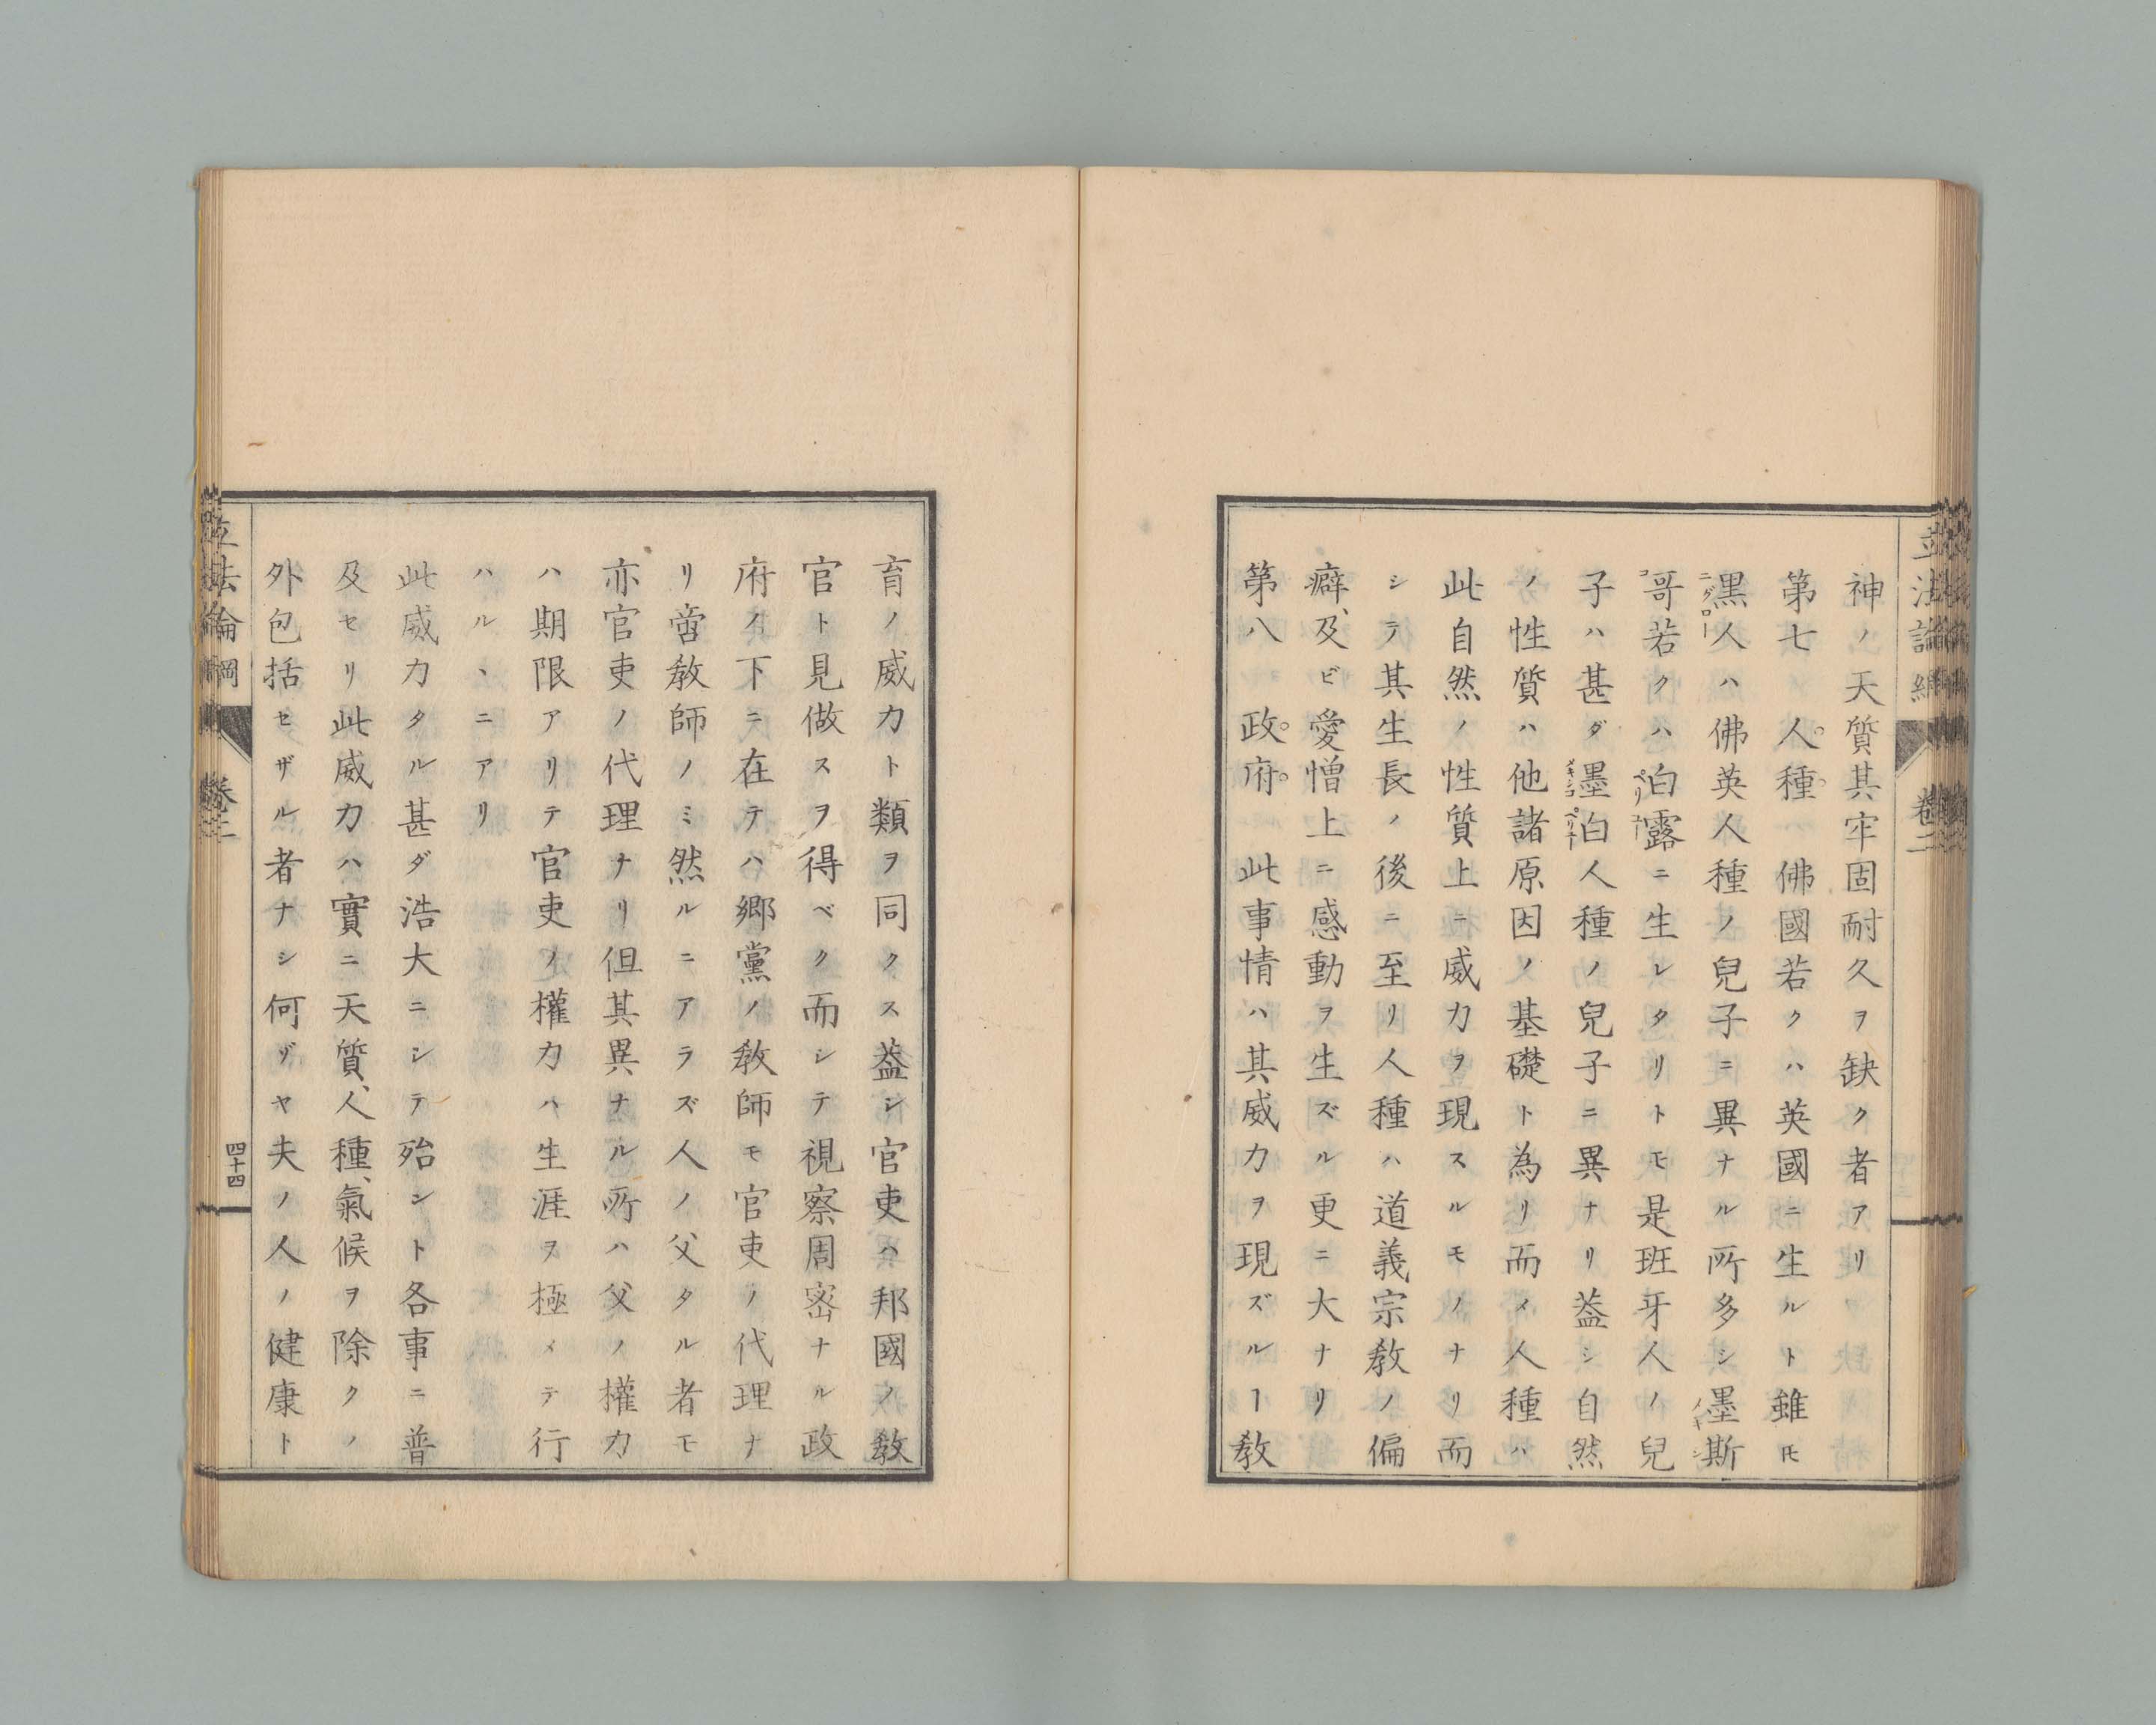 神ノ天質其牢固耐久ヲ缺ク者アリ
第七 人種 佛國若クハ英國ニ生ルト雖𪜈
黒人ハ佛英人種ノ兒子ニ異ナル所多シ墨斯
哥若クハ白露ニ生レタリトモ是班牙人ノ兒
子ハ甚ダ墨白人種ノ兒子ニ異ナリ葢シ自然
ノ性質ハ他諸原因ノ基礎ト為リ而メ人種ハ
此自然ノ性質上ニ威力ヲ現スルモノナリ而
シテ其生長ノ後ニ至リ人種ハ道義宗教ノ偏
癖、及ビ愛憎上ニ感動ヲ生ズル更ニ大ナリ
第八 政府 此事情ハ其威力ヲ現ズルヿ教
立法論綱 卷二
育ノ威力ト類ヲ同クス葢シ官吏ハ邦國ノ教
官ト見做スヲ得ベク而シテ視察周密ナル政
府ノ下ニ在テハ郷黨ノ教師モ官吏ノ代理ナ
リ啻教師ノミ然ルニアラズ人ノ父タル者モ
亦官吏ノ代理ナリ但其異ナル所ハ父ノ權力
ハ期限アリテ官吏ノ權力ハ生涯ヲ極メテ行
ハルヽニアリ
此威力タル甚ダ浩大ニシテ殆ント各事ニ普
及セリ此威力ハ實ニ天質、人種、氣候ヲ除クノ
外包括セザル者ナシ何ゾヤ夫ノ人ノ健康ト
立法論綱 卷二 四十四